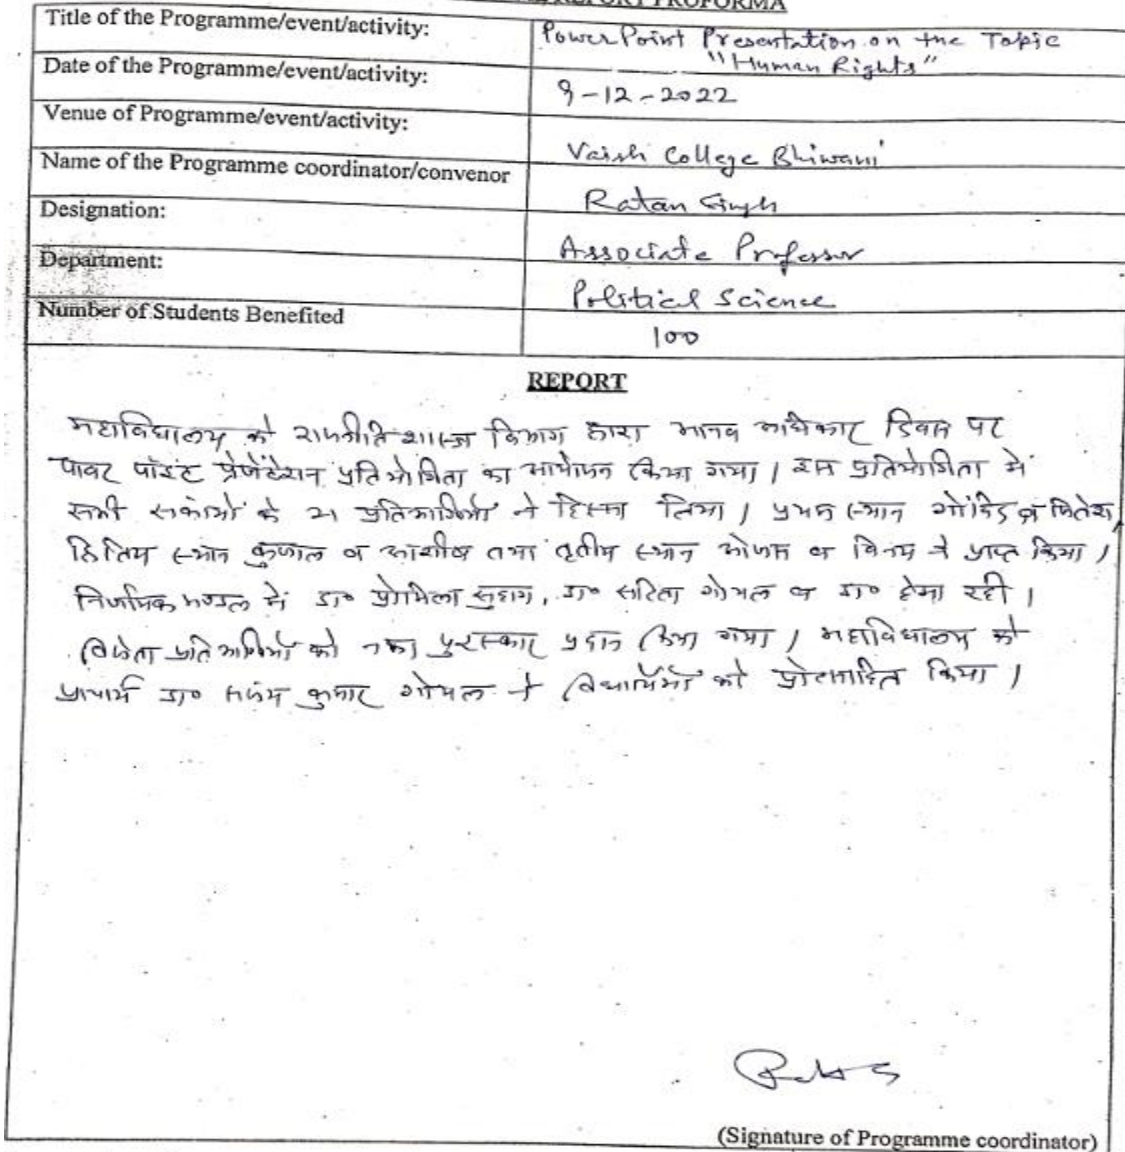 REPORT PROFORMA
Title of the Programme/event/activity: PowerPoint Presentation on the Topic
"Human Rights"
Date of the Programme/event/activity: 9-12-2022
Venue of Programme/event/activity: Vaish College Bhiwani
Name of the Programme coordinator/convenor Ratan Singh
Designation: Associate Professor
Department: Political Science
Number of Students Benefited 100
REPORT
महाविद्यालय के राजनीति शास्त्र विभाग द्वारा मानव अधिकार दिवस पर
पावर पॉइंट प्रेजेंटेशन प्रतियोगिता का आयोजन किया गया । इस प्रतियोगिता में
सभी संकायों के 21 प्रतिभागियों ने हिस्सा लिया । प्रथम स्थान गोविंद व
द्वितीय स्थान कुणाल व आशीष तथा तृतीय स्थान व विनय ने प्राप्त किया ।
निर्णायक मण्डल में डा० प्रोमिला सुहाग, डा० सरिता गोयल व डा० हेमा रही ।
विजेता प्रतिभागियों को नकद पुरस्कार प्रदान किया गया । महाविद्यालय के
प्राचार्य डा० संजय कुमार गोयल ने विद्यार्थियों को प्रोत्साहित किया ।
(Signature of Programme coordinator)